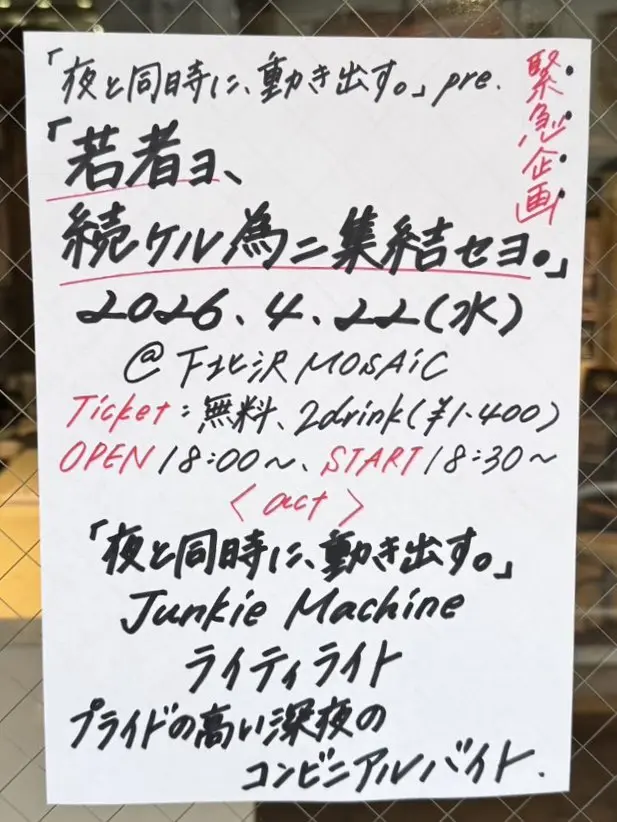 「夜と同時に、動き出す。」pre.
緊急企画
「若者ヨ、
続ケル為ニ集結セヨ。」
2026.4.22(水)
@下北沢MOSAiC
Ticket:無料、2drink(¥1.400)
OPEN 18:00~、START 18:30~
<act>
「夜と同時に、動き出す。」
Junkie Machine
ライティライト
プライドの高い深夜の
コンビニアルバイト.